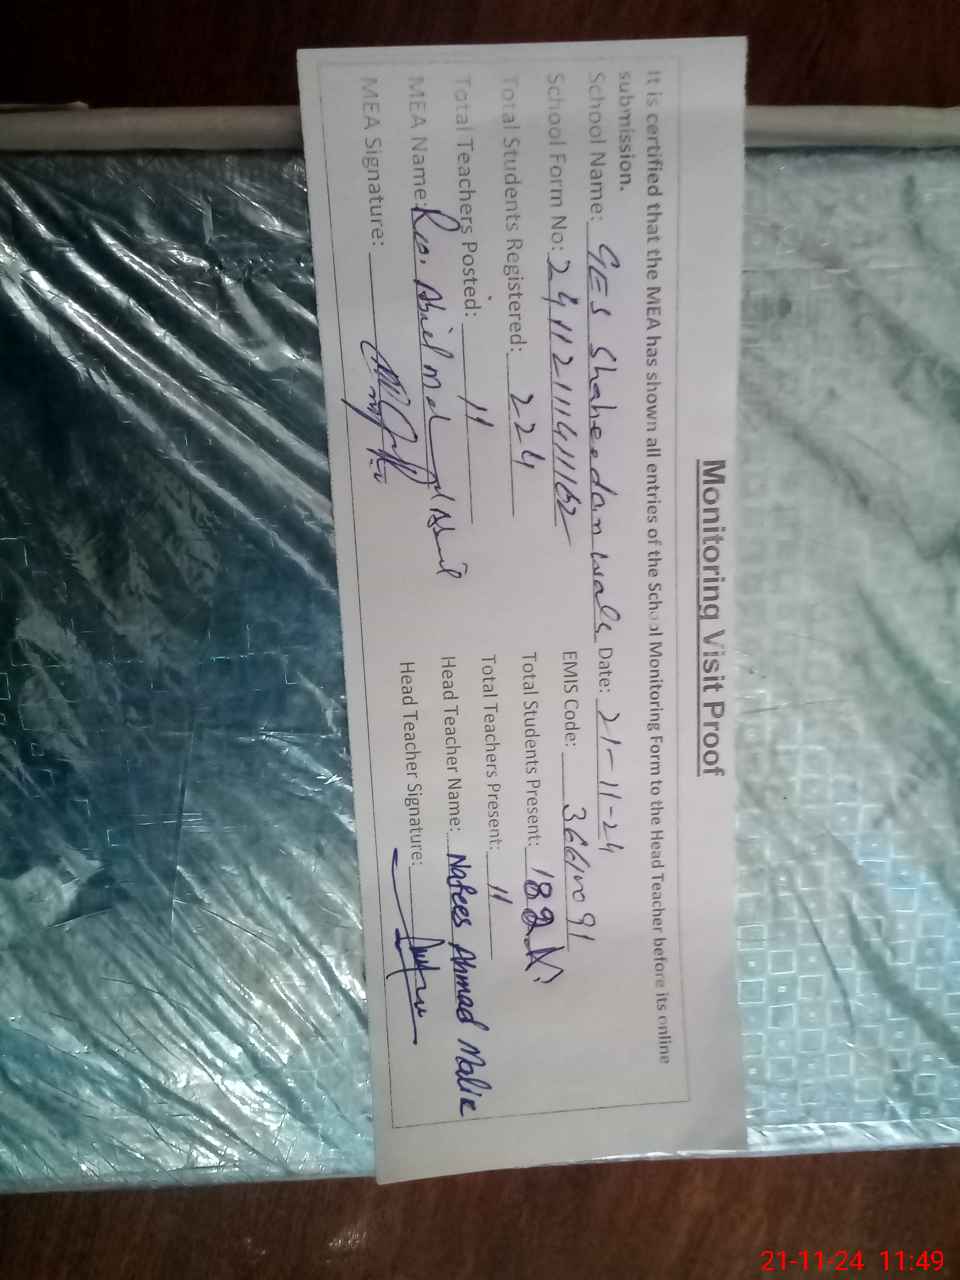 Monitoring Visit Proof
It is certified that the MEA has shown all entries of the School Monitoring Form to the Head Teacher before its online
submission.
School Name: GES Shaheedan wala Date: 21-11-24
School Form No: EMIS Code:
Total Students Registered: 224 Total Students Present: 182
Total Teachers Posted: 11 Total Teachers Present: 11
MEA Name: Head Teacher Name: Nafees Ahmad Malik
MEA Signature: Head Teacher Signature:
21-11-24 11:49